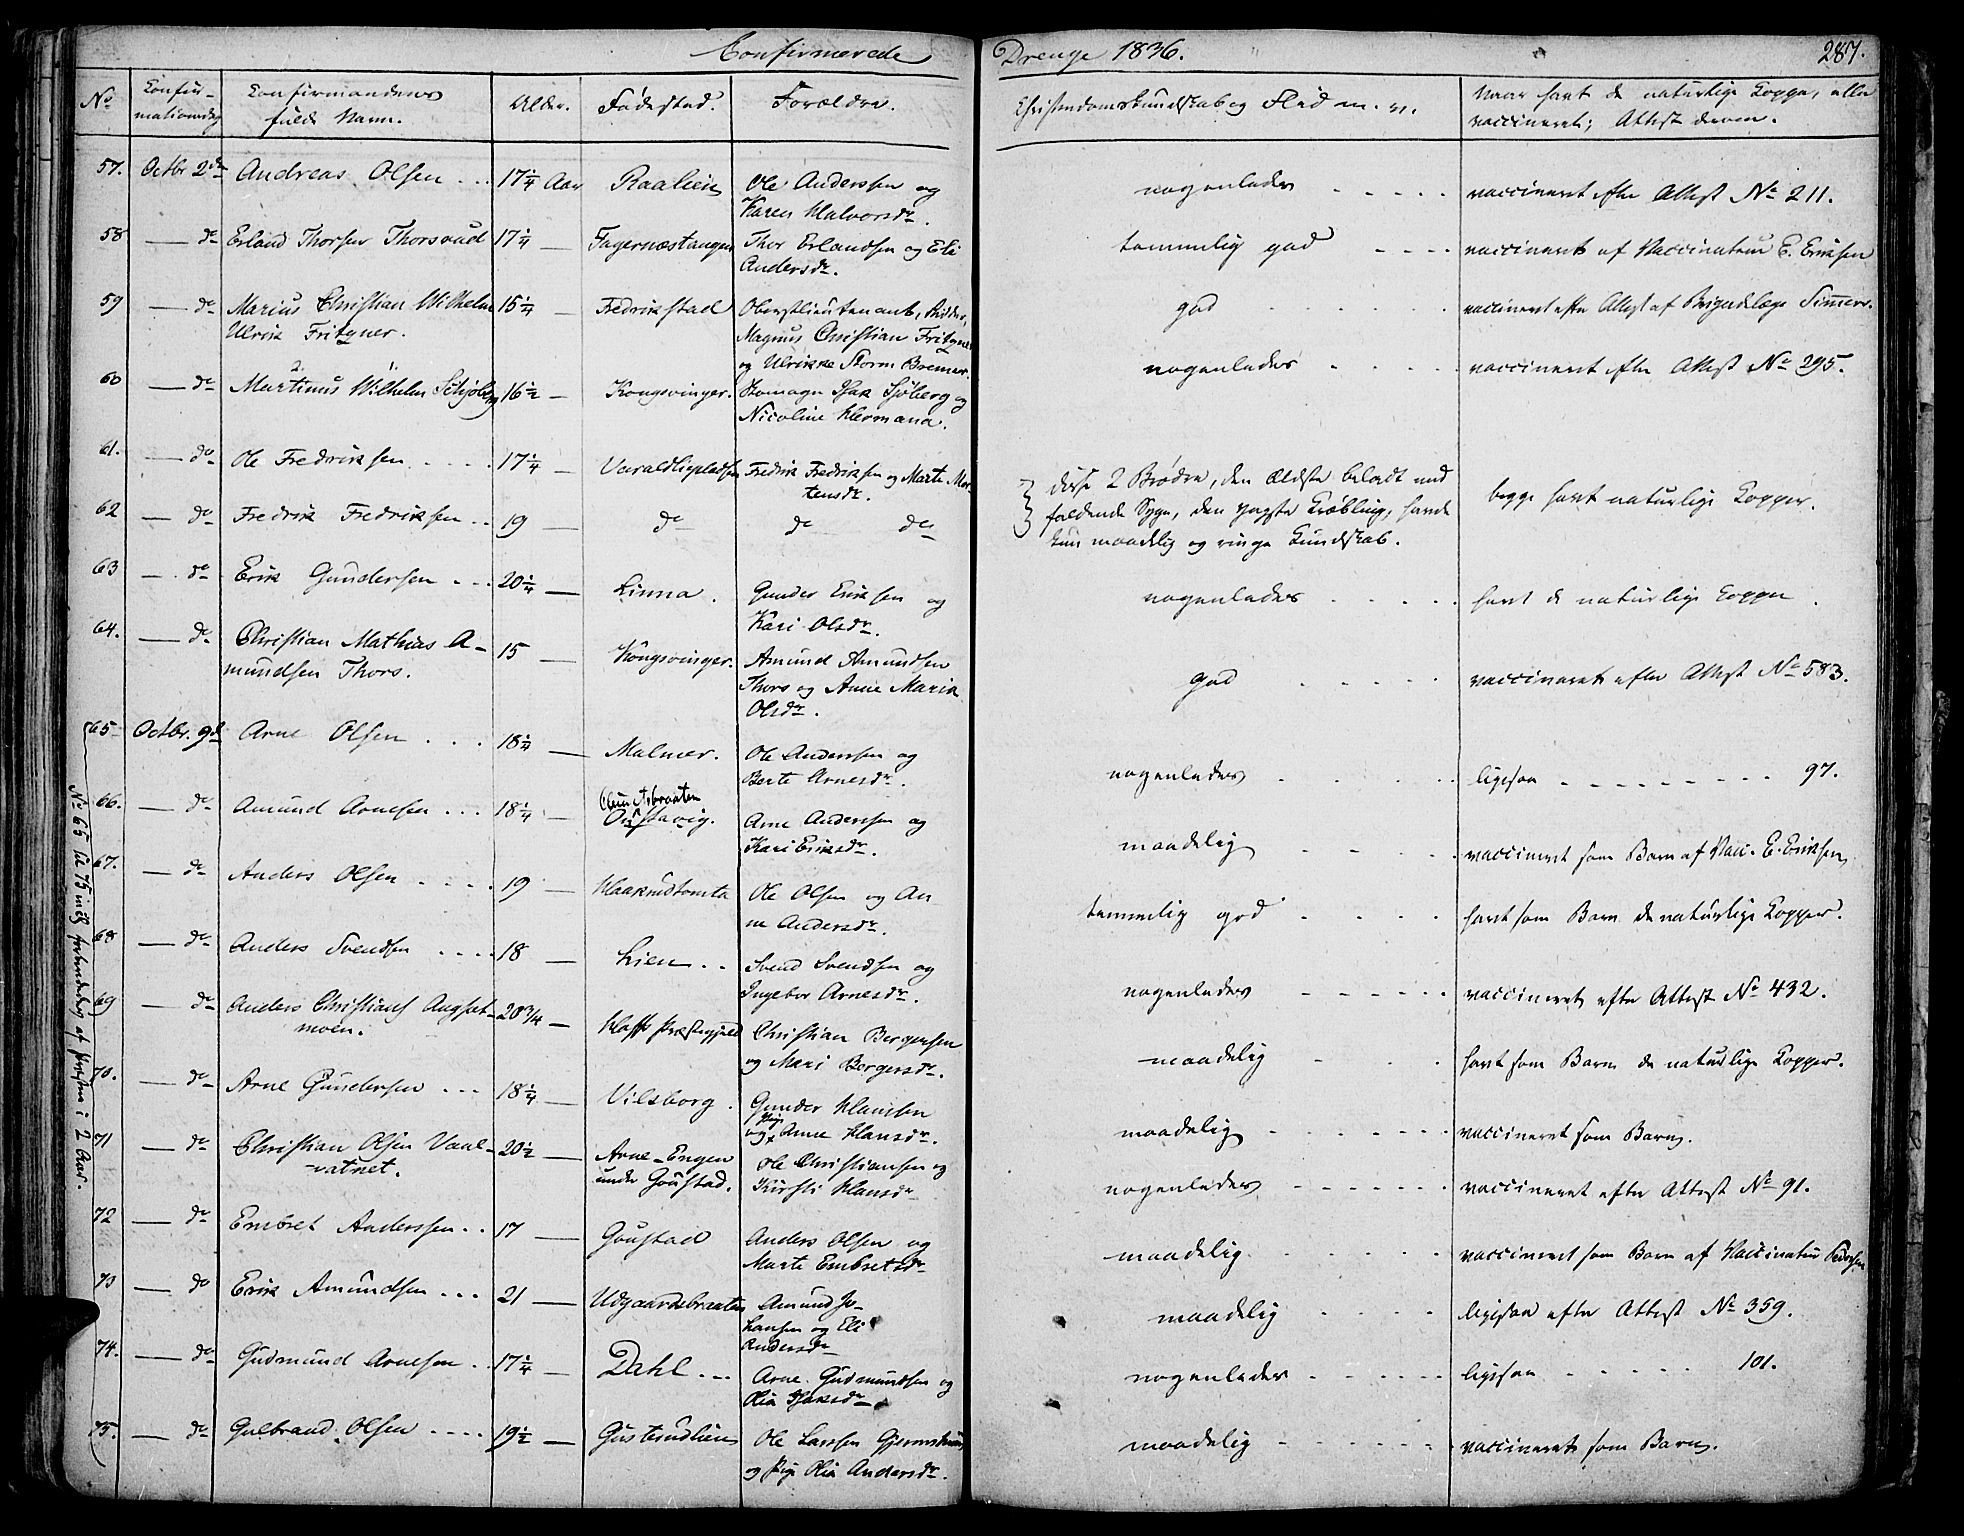 Confirmerede Drenge 1836. 287.
No Confirmationsdag Confirmandens fulde Navn. Alder. Fødested. Forældre. Christendomskundskab og Flid m. v. Naar havt de naturlige Kopper, eller vaccineret; Attest derom.
57. Octbr 2de Andreas Olsen 17 1/4 Aar Raalien Ole Anderssen og Karen Halvorsdr. nogenledes vaccineret efter Attest No 211.
58 — do Erland Thorsen Thorsrud 17 1/4 — Fagernæstangen Thor Erlandsen og Eli Andersdr. temmelig god vaccineret af Vaccinateur E. Eriksen
59 — do Marius Christian Wilhelm Ulrik Fritzner. 15 1/4 — Fredrikstad Oberstlieutenant, Ridder, Magnus Christian Fritzner og Ulrikke Storm Bremer. god vaccineret efter Attest af Brigadelæge
60 — do Martinus Wilhelm 16 1/2 — Kongsvinger. Isak Sjøberg og Nicoline Hermana. nogenledes vaccineret efter Attest No 295.
61. — do Ole Fredriksen 17 1/4 — Varaldliepladsen Fredrik Fredriksen og Marte Mortensdr. disse 2 Brødre, den Ældste beladt med faldende Syge, den yngste Krøbling, havde kun maadelig og ringe Kundskab. begge havt naturlige Kopper.
62 — do Fredrik Fredriksen 19 — do do do
63 — do Erik Gundersen 20 1/4 — Linna. Gunder Eriksen og Kari Olsdr. nogenledes havt de naturlige Kopper.
64. — do Christian Mathias Amundsen Thors. 15 — Kongsvinger. Amund Amundsen Thors og Anne Marie Olsdr. god vaccineret efter Attest No 583.
65 Octbr. 9de Arne Olsen 18 1/4 — Malmer. Ole Anderssen og Berte Arnesdr. nogenledes ligesaa 97.
66. — do Amund Arnesen 18 1/4 — Arne Anderssen og Kari Eriksdr. maadelig vaccineret som Barn af Vacc. E. Eriksen
67. — do Anders Olsen 19 — Haakrudtomta Ole Olsen og Anne Andersdr. temmelig god havt som Barn de naturlige Kopper.
68 — do Anders Svendsen 18 — Lien Svend Svendsen og Ingebor Arnesdr. nogenledes vaccineret efter Attest No 432.
69 — do Anders Christians. moen. 20 3/4 — Hoffs Præstegjeld Christian Bergersen og Mari Bergersdr. maadelig havt som Barn de naturlige Kopper.
70. — do Arne Gundersen 18 1/4 — Vilsborg. Gunder Hansen og Pige Anne Hansdr. maadelig vaccineret som Barn.
71 — do Christian Olsen Vaalvatnet. 20 1/2 — Arne-Engen under Goustad. Ole Christiansen og Kirsti Hansdr nogenledes vaccineret efter Attest No 91.
72 — do Embret Anderssen 17 — Goustad Anders Olsen og Marte Embretsdr maadelig. vaccineret som Barn af Vaccinateur Pedersen
73 — do Erik Amundsen 21 — Udgaardsbraaten Amund Johansen og Eli Andersdr maadelig ligesaa efter Attest No 359.
74. — do Gudmund Arnesen 17 1/4 — Dahl Arne Gudmundsen og Olia Isaksdr. nogenledes ligesaa 101.
75. — do Gulbrand Olsen 19 1/2 — Gusterudlien Ole Larssen og Pige Olia Andersdr. maadelig vaccineret som Barn.
No 65 til 75 incl. forberedede af Præsten i 2 Aar.